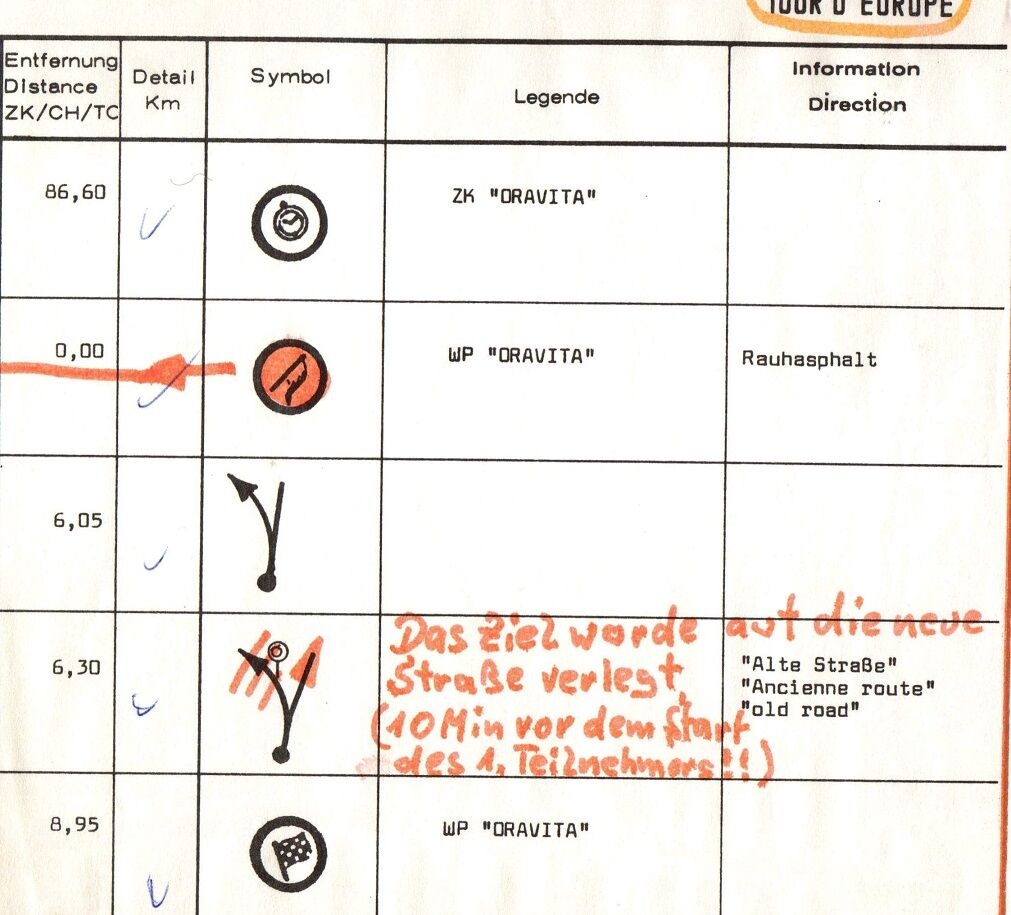 TOUR D'EUROPE
Entfernung
Distance
ZK/CH/TC
Detail
Km
Symbol
Legende
Information
Direction
86,60
ZK "ORAVITA"
0,00
WP "ORAVITA"
Rauhasphalt
6,05
6,30
Das Ziel wurde auf die neue
Straße verlegt,
(10 Min vor dem Start
des 1. Teilnehmers!!)
"Alte Straße"
"Ancienne route"
"old road"
8,95
WP "ORAVITA"